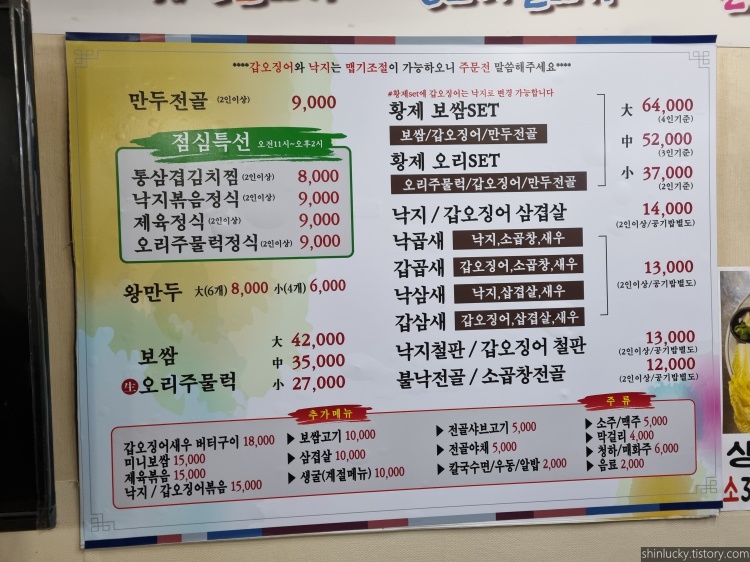 ****갑오징어와 낙지는 맵기조절이 가능하오니 주문전 말씀해주세요****
만두전골 (2인이상) 9,000
점심특선 오전11시~오후2시
통삼겹김치찜 (2인이상) 8,000
낙지볶음정식 (2인이상) 9,000
제육정식 (2인이상) 9,000
오리주물럭정식 (2인이상) 9,000
왕만두 大(6개) 8,000 小(4개) 6,000
보쌈
生 오리주물럭
大 42,000
中 35,000
小 27,000
#황제set에 갑오징어는 낙지로 변경 가능합니다
황제 보쌈SET
보쌈/갑오징어/만두전골
황제 오리SET
오리주물럭/갑오징어/만두전골
大 64,000
(4인기준)
中 52,000
(3인기준)
小 37,000
(2인기준)
낙지 / 갑오징어 삼겹살 14,000
(2인이상/공기밥별도)
낙곱새 낙지,소곱창,새우
갑곱새 갑오징어,소곱창,새우
낙삼새 낙지,삼겹살,새우
갑삼새 갑오징어,삼겹살,새우
13,000
(2인이상/공기밥별도)
낙지철판 / 갑오징어 철판 13,000
(2인이상/공기밥별도)
불낙전골 / 소곱창전골 12,000
(2인이상/공기밥별도)
추가메뉴
갑오징어새우 버터구이 18,000
미니보쌈 15,000
제육볶음 15,000
낙지 / 갑오징어볶음 15,000
▶ 보쌈고기 10,000
▶ 삼겹살 10,000
▶ 생굴(계절메뉴) 10,000
▶ 전골샤브고기 5,000
▶ 전골야채 5,000
▶ 칼국수면/우동/알밥 2,000
주류
▶ 소주/맥주 5,000
▶ 막걸리 4,000
▶ 청하/매화주 6,000
▶ 음료 2,000
소3
shinlucky.tistory.com